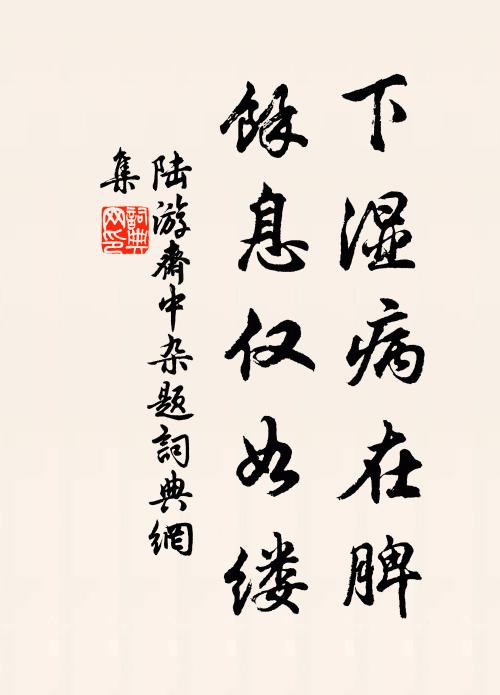 下湿病在脾
馀息仅如缕
陆游斋中杂题詞典網
集
詞典
网印